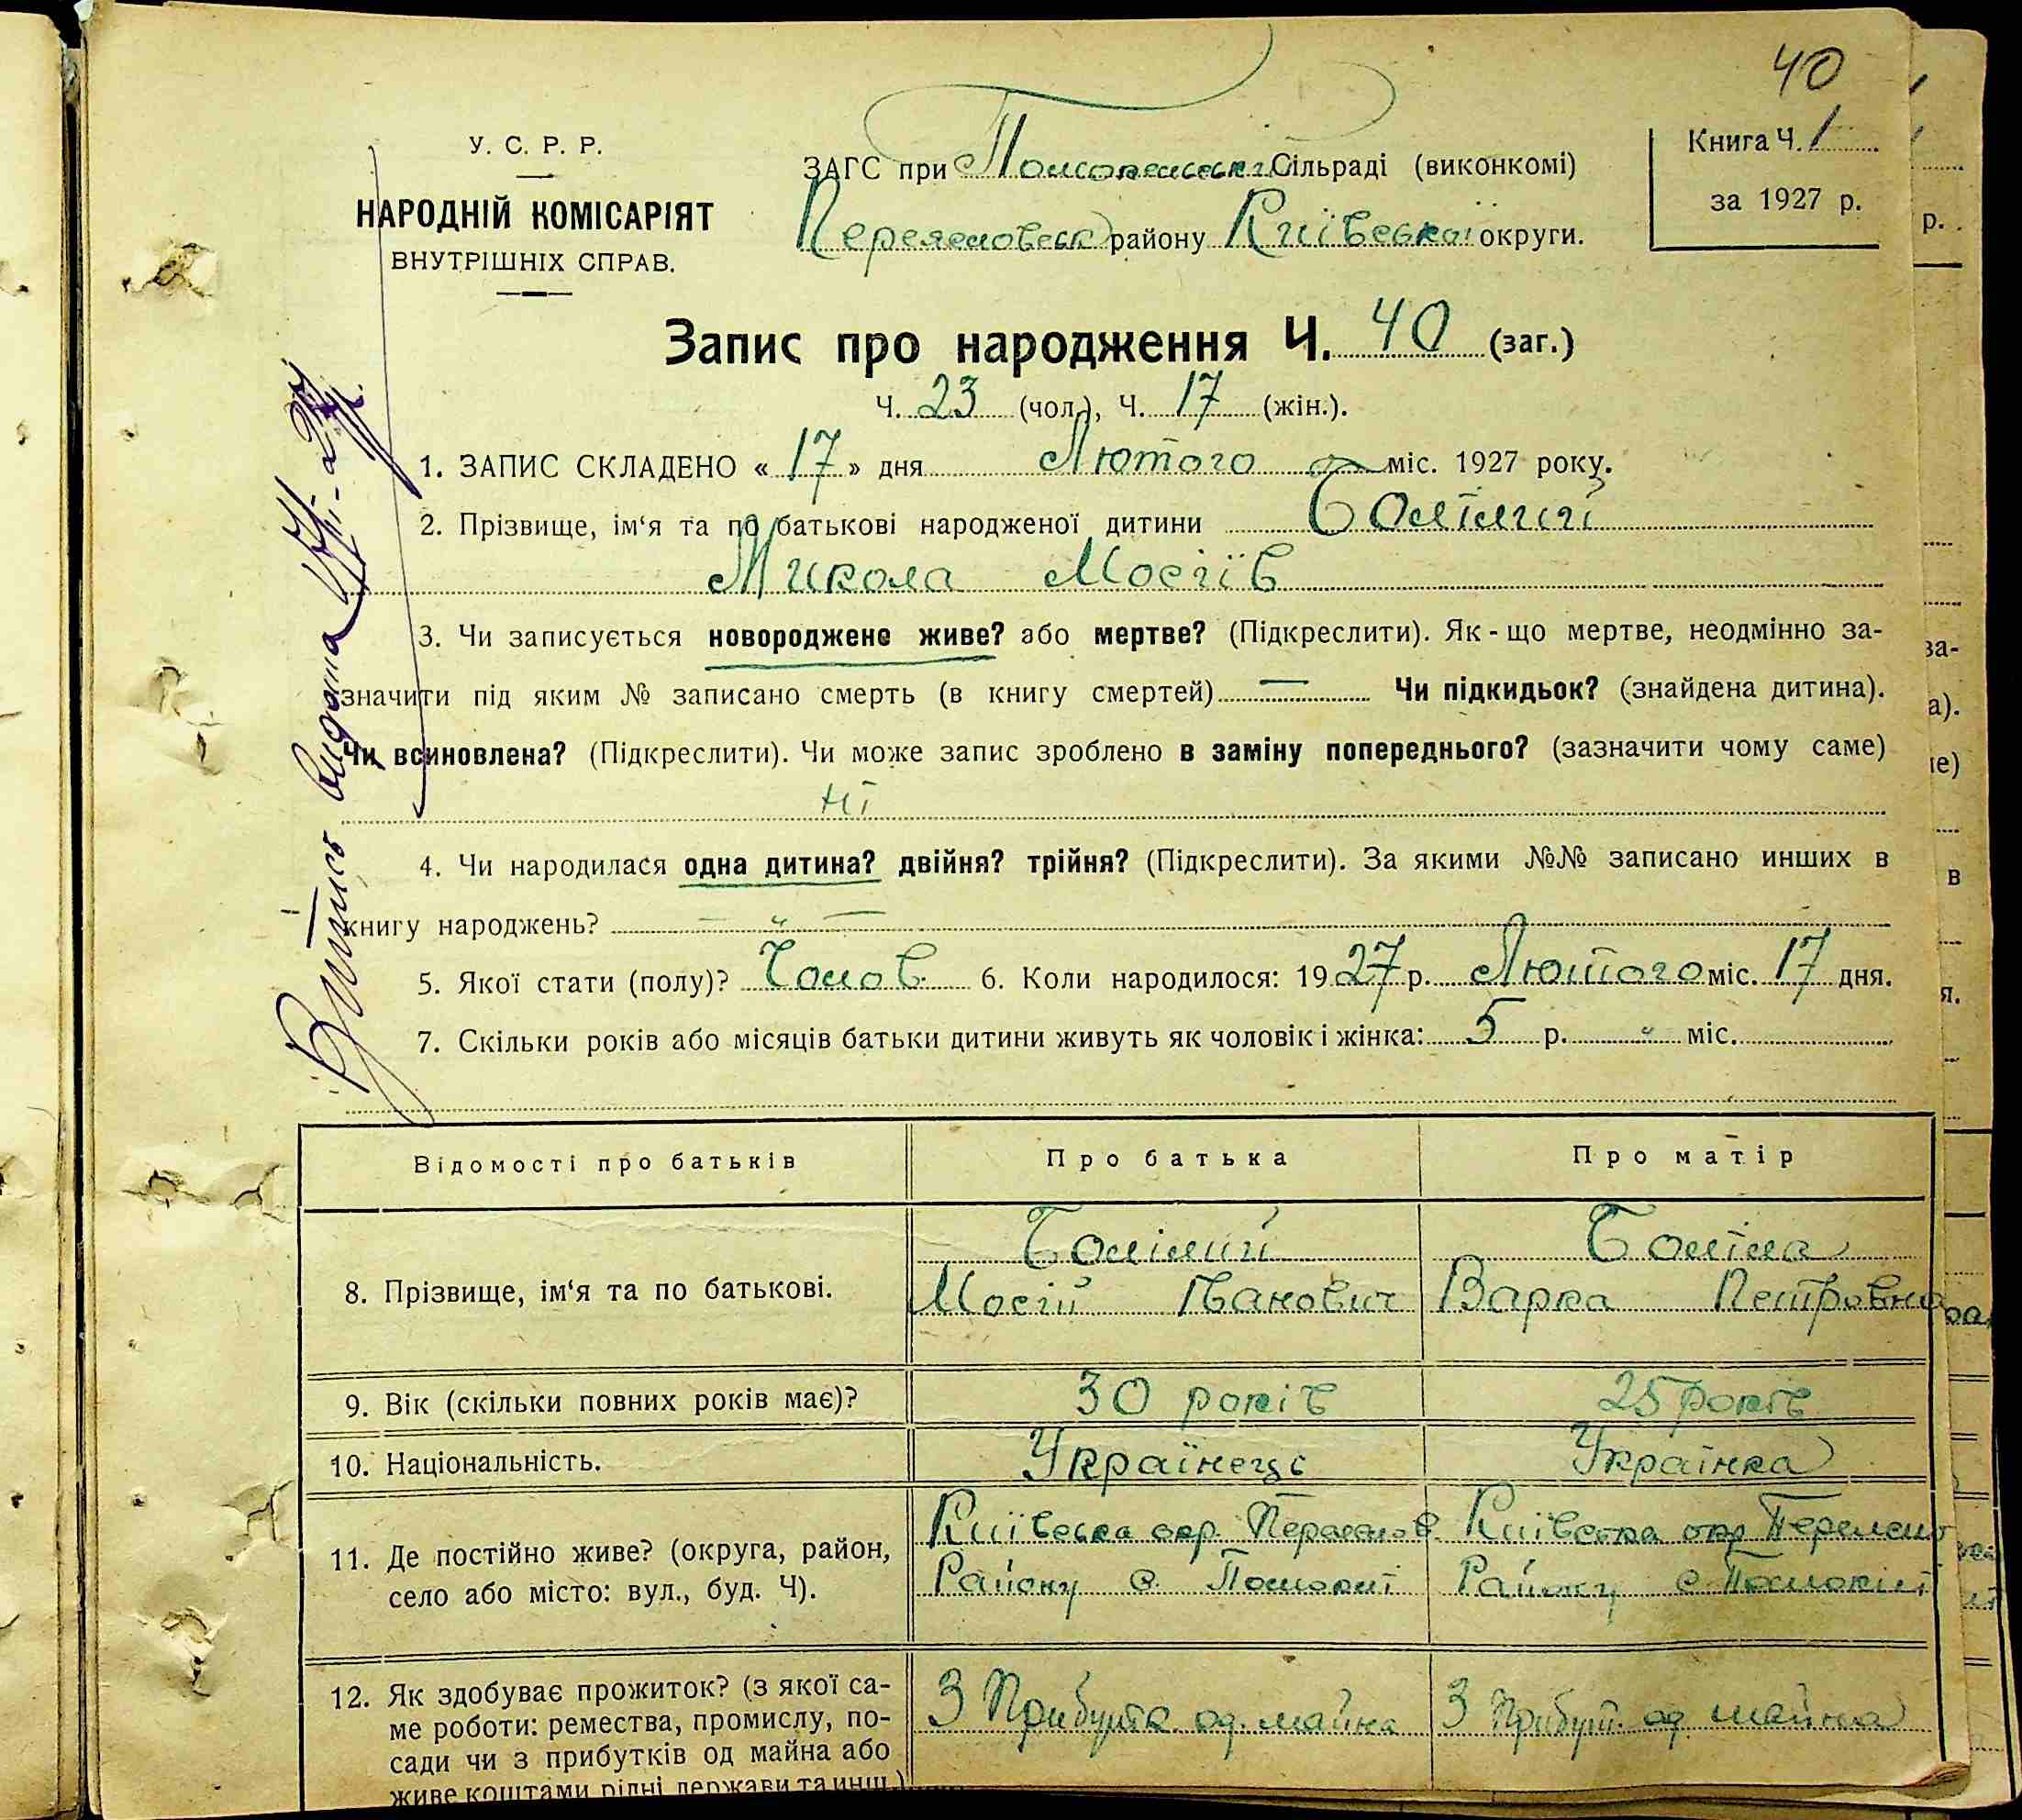 40
У. С. Р. Р.
НАРОДНІЙ КОМІСАРІЯТ
ВНУТРІШНІХ СПРАВ.
ЗАГС при Помоклеській Сільраді (виконкомі)
Переяславськ району Київської округи.
Книга Ч. 1
за 1927 р.
Запис про народження Ч. 40 (заг.)
Ч. 23 (чол.), Ч. 17 (жін.).
1. ЗАПИС СКЛАДЕНО « 17 » дня Лютого міс. 1927 року.
2. Прізвище, ім‘я та по батькові народженої дитини
Микола Мосіїв
3. Чи записується новороджене живе? або мертве? (Підкреслити). Як - що мертве, неодмінно за-
значити під яким № записано смерть (в книгу смертей) — Чи підкидьок? (знайдена дитина).
Чи всиновлена? (Підкреслити). Чи може запис зроблено в заміну попереднього? (зазначити чому саме)
ні
4. Чи народилася одна дитина? двійня? трійня? (Підкреслити). За якими №№ записано инших в
книгу народжень? — " —
5. Якої стати (полу)? Чолов. 6. Коли народилося: 1927 р. Лютого міс. 17 дня.
7. Скільки років або місяців батьки дитини живуть як чоловік і жінка: 5 р. " міс.
Витись видана
Відомості про батьків Про батька Про матір
8. Прізвище, ім‘я та по батькові.
Мосій Іванович Варка Петровна
9. Вік (скільки повних років має)? 30 років 25 років
10. Національність. Українець Українка
11. Де постійно живе? (округа, район,
село або місто: вул., буд. Ч).
Київська окр. Київська окр
Району с. Району с.
12. Як здобуває прожиток? (з якої са-
ме роботи: ремества, промислу, по-
сади чи з прибутків од майна або
живе коштами рідні держави та инш.)
З Прибутк. од. майна З Прибут. од майна